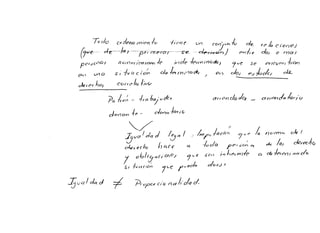 Todo ordenamiento tiene un conjunto de relaciones
(que de las primeras se derivan) entre dos o más
personas numéricamente indeterminadas, que se encuentran
en una situación determinada, en dos estados de
derechos correlativos
Patrón - trabajador arrendador - arrendatario
donante - donatario
Igualdad legal: Imputación que la norma del
derecho hace a toda persona de los derechos
y obligaciones que son inherentes a determinada
situación que pueda darse
Igualdad ≠ Proporcionalidad.